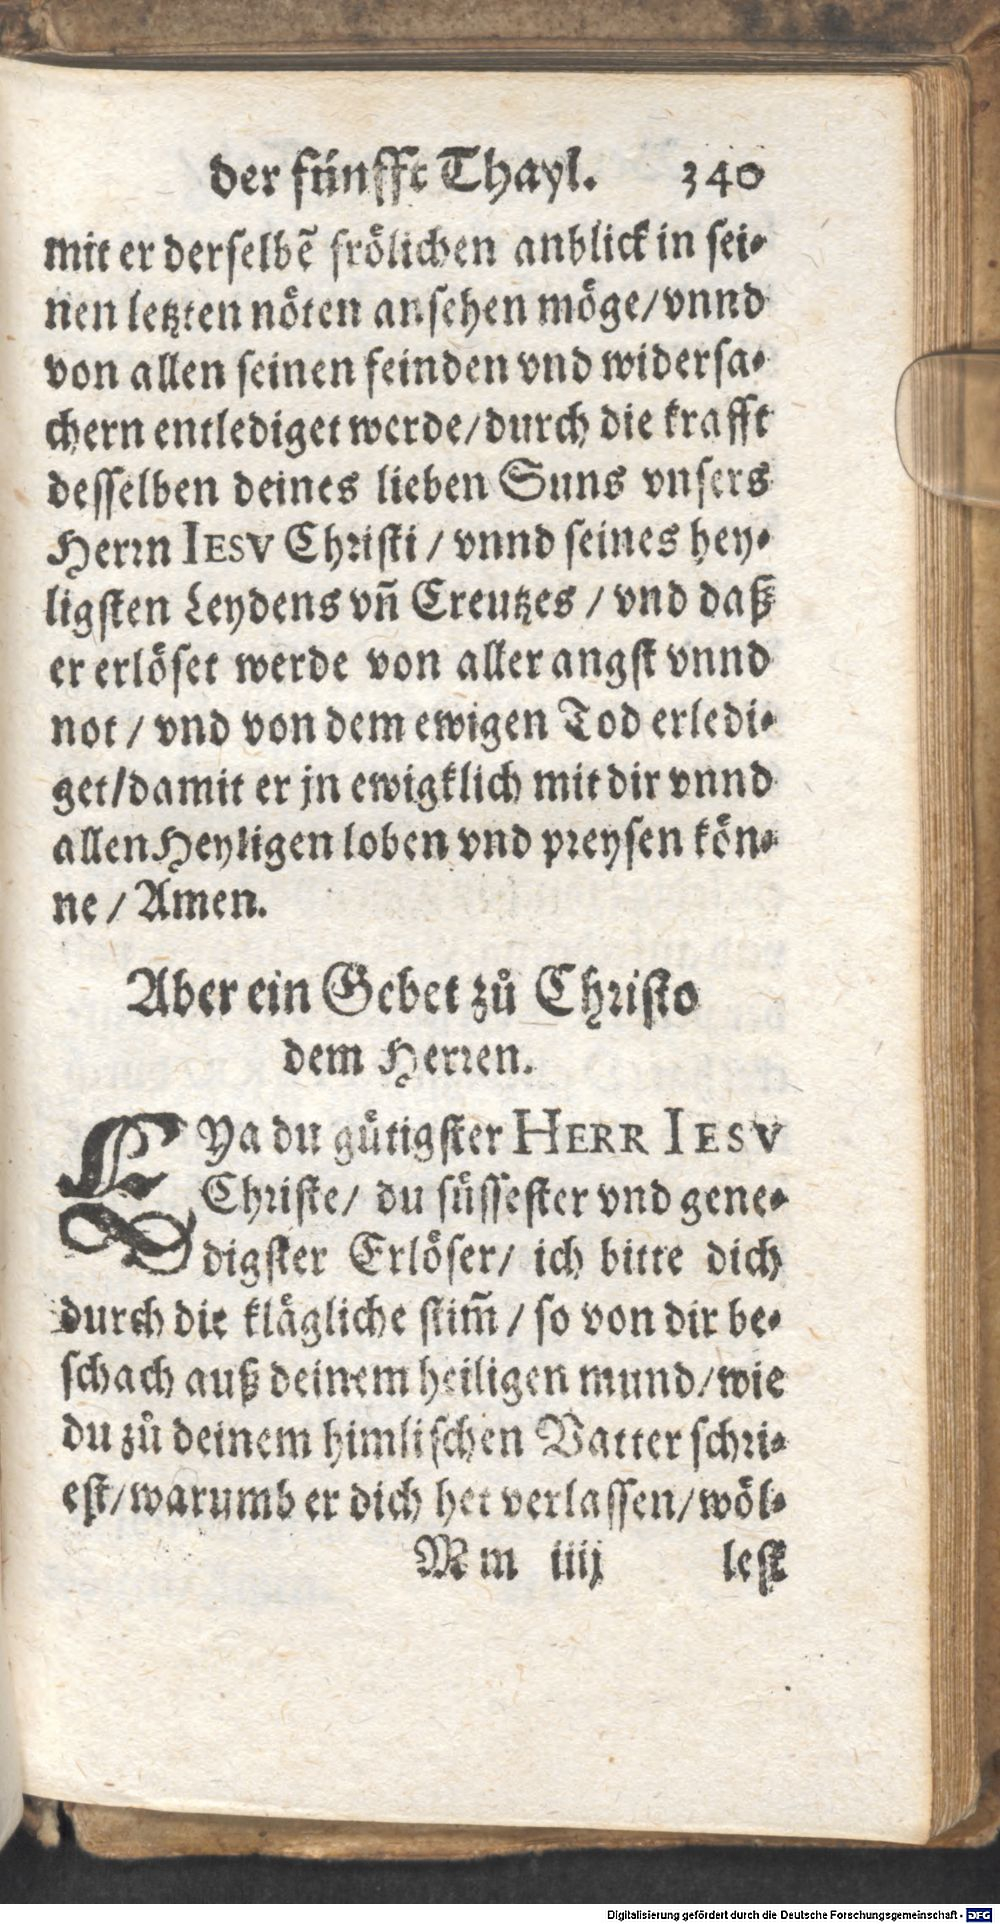 der fünfft Thayl. 340
mit er derselbẽ frölichen anblick in sei-
nen letzten nöten ansehen möge/vnnd
von allen seinen feinden vnd widersa-
chern entlediget werde/durch die krafft
desselben deines lieben Suns vnsers
Herrn IESV Christi / vnnd seines hey-
ligsten Leydens vñ Creutzes / vnd daß
er erlöset werde von aller angst vnnd
not / vnd von dem ewigen Tod erledi-
get/damit er jn ewigklich mit dir vnnd
allen Heyligen loben vnd preysen kön-
ne / Amen.
Aber ein Gebet zů Christo
dem Herren.
EYa du gütigster HERR IESV
Christe/ du süssester vnd gene-
digster Erlöser/ ich bitte dich
durch die klägliche stim̃ / so von dir be-
schach auß deinem heiligen mund/wie
du zů deinem himlischen Vatter schri-
est/warumb er dich het verlassen/wöl-
Mm iiij lest
Digitalisierung gefördert durch die Deutsche Forschungsgemeinschaft - DFG